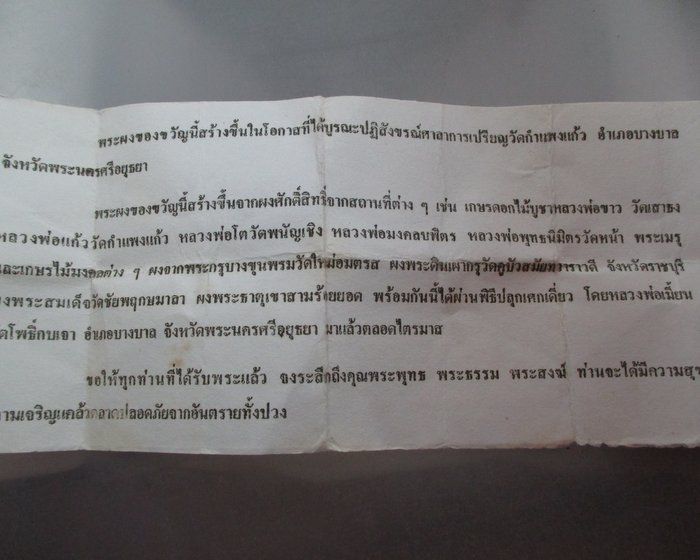 พระผงของขวัญนี้สร้างขึ้นในโอกาสที่ได้บูรณะปฏิสังขรณ์ศาลาการเปรียญวัดกำแพงแก้ว อำเภอบางบาล
จังหวัดพระนครศรีอยุธยา
พระผงของขวัญนี้สร้างขึ้นจากผงศักดิ์สิทธิ์จากสถานที่ต่าง ๆ เช่น เกษรดอกไม้บูชาหลวงพ่อขาว วัดเสาธง
หลวงพ่อแก้ววัดกำแพงแก้ว หลวงพ่อโตวัดพนัญเชิง หลวงพ่อมงคลบพิตร หลวงพ่อพุทธนิมิตรวัดหน้า พระเมรุ
และเกษรไม้มงคลต่าง ๆ ผงจากพระกรุบางขุนพรมวัดใหม่อมตรส ผงพระดินเผากรุวัดคูบัวสมัยทวาราวดี จังหวัดราชบุรี
ผงพระสมเด็จวัดชัยพฤกษมาลา ผงพระธาตุเขาสามร้อยยอด พร้อมกันนี้ได้ผ่านพิธีปลุกเศกเดี่ยว โดยหลวงพ่อเมี้ยน
โพธิ์กบเจา อำเภอบางบาล จังหวัดพระนครศรีอยุธยา มาแล้วตลอดไตรมาส
ขอให้ทุกท่านที่ได้รับพระแล้ว จงระลึกถึงคุณพระพุทธ พระธรรม พระสงฆ์ ท่านจะได้มีความสุข
ความเจริญแคล้วคลาดปลอดภัยจากอันตรายทั้งปวง